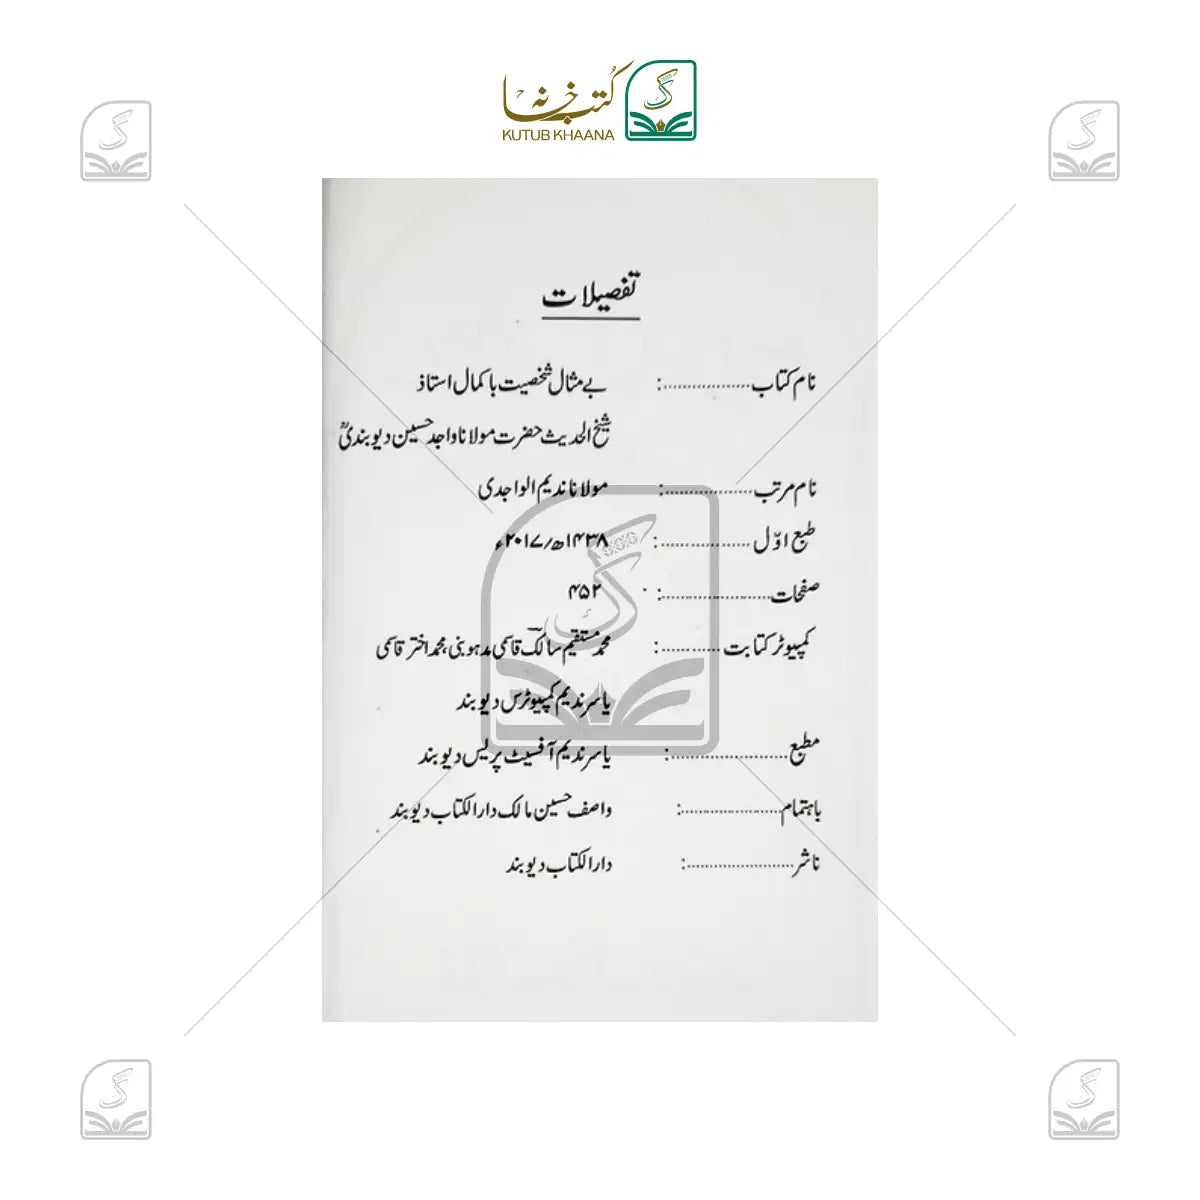 کتب خانہ
KUTUB KHAANA
تفصیلات
نام کتاب ..................: بے مثال شخصیت باکمال استاذ
شیخ الحدیث حضرت مولانا واجد حسین دیوبندیؒ
نام مرتب ..................: مولانا ندیم الواجدی
طبع اوّل ..................: ۱۴۳۸ھ/۲۰۱۷ء
صفحات ......................: ۴۵۲
کمپیوٹر کتابت ............: محمد مستقیم سالکؔ قاسمی مدہوبنی، محمد اختر قاسمی
یاسر ندیم کمپیوٹرس دیوبند
مطبع ......................: یاسر ندیم آفسیٹ پریس دیوبند
باہتمام ....................: واصف حسین مالک دارالکتاب دیوبند
ناشر ......................: دارالکتاب دیوبند